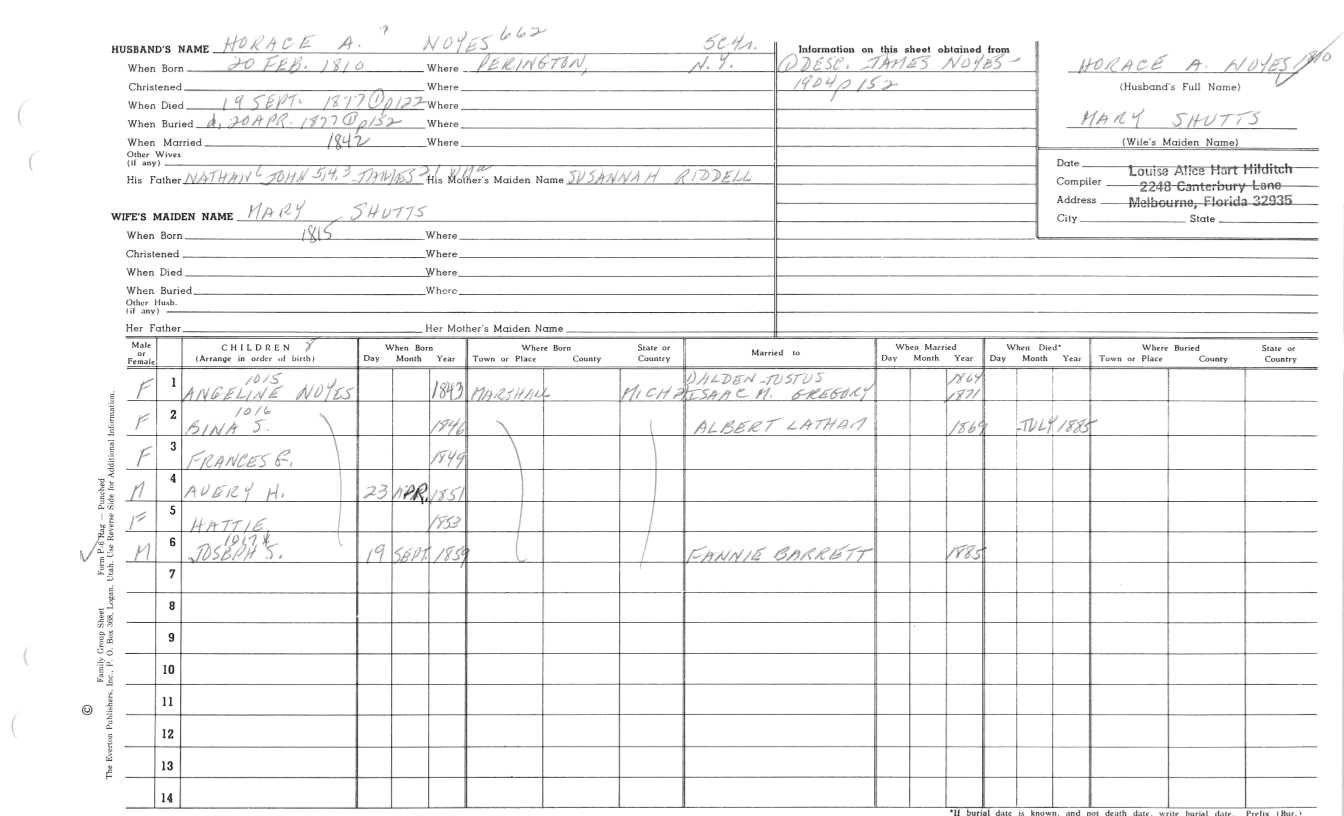 HUSBAND'S NAME HORACE A. 7 NOYES 662 5ch.
When Born 20 FEB. 1810 Where PERINGTON, N.Y.
Christened Where
When Died 19 SEPT. 1877 ① p122 Where
When Buried d. 20 APR. 1877 ① p152 Where
When Married 1842 Where
Other Wives
(if any)
His Father NATHAN 6 JOHN 5,4,3 JAMES 2,1 His Mother's Maiden Name SUSANNAH RIDDELL
WIFE'S MAIDEN NAME MARY SHUTTS
When Born 1815 Where
Christened Where
When Died Where
When Buried Where
Other Husb.
(if any)
Her Father Her Mother's Maiden Name
Information on this sheet obtained from
① DESC. JAMES NOYES -
1904 p152
HORACE A. NOYES 1810
(Husband's Full Name)
MARY SHUTTS
(Wife's Maiden Name)
Date
Compiler Louise Alice Hart Hilditch
Address 2248 Canterbury Lane
Melbourne, Florida 32935
City State
Male or Female CHILDREN 8 (Arrange in order of birth) When Born Day Month Year Where Born Town or Place County State or Country Married to When Married Day Month Year When Died* Day Month Year Where Buried Town or Place County State or Country
F 1 1015 ANGELINE NOYES 1843 MARSHALL MICH ① ALDEN JUSTUS 1864
2 ISAAC M. GREGORY 1871
F 2 1016 BINA S. 1846 ALBERT LATHAM 1869 JULY 1885
F 3 FRANCES E. 1849
M 4 AVERY H. 23 APR. 1851
F 5 HATTIE 1853
M 6 1017 JOSEPH S. 19 SEPT 1859 FANNIE BARRETT 1885
7
8
9
10
11
12
13
14
*If burial date is known, and not death date, write burial date. Prefix (Bur.)
© Family Group Sheet Form P-6 Rag — Punched
The Everton Publishers, Inc., P. O. Box 368, Logan, Utah. Use Reverse Side for Additional Information.